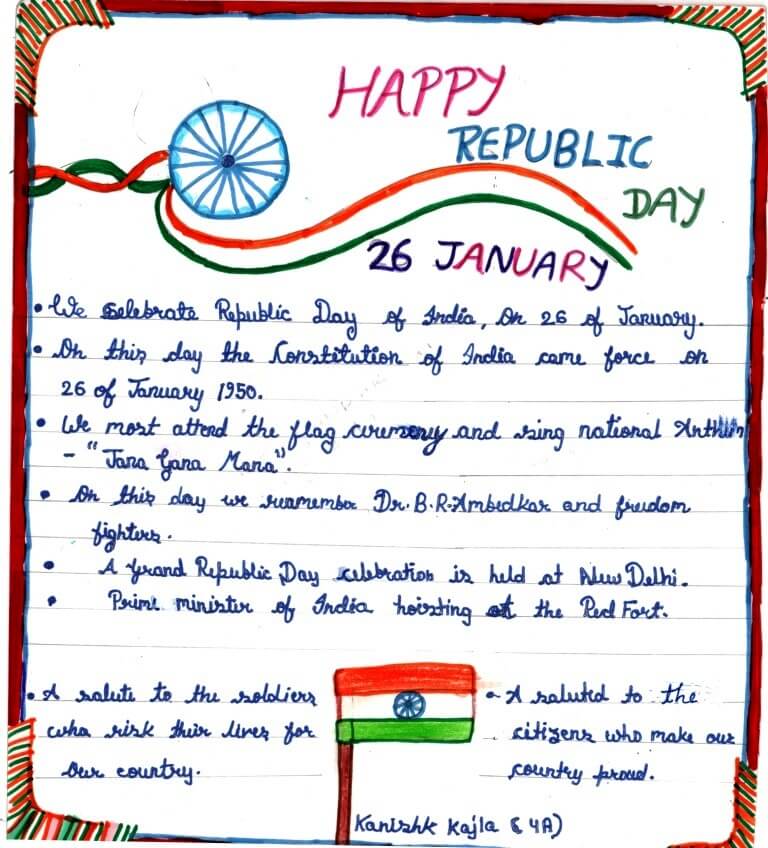 HAPPY
REPUBLIC
DAY
26 JANUARY
• We celebrate Republic Day of India, On 26 of January.
• On this day the Constitution of India came force on
26 of January 1950.
• We most attend the flag ceremony and sing national Anthem
- "Jana Gana Mana".
• On this day we reamember Dr. B.R. Ambedkar and freedom
fighters.
• A Grand Republic Day celebration is held at New Delhi.
• Prime minister of India hoisting at the Red Fort.
• A salute to the soldiers
who risk their lives for
our country.
• A saluted to the
citizens who make our
country proud.
Kanishk Kajla ( 4A)